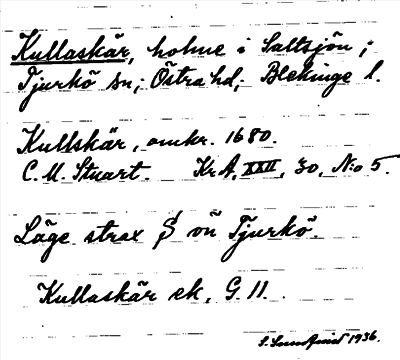 Kullaskär, holme i Saltsjön;
Tjurkö sn; Östra hd; Blekinge l.
Kullskär, omkr. 1680.
C. M. Stuart. Kr.A. XXII, 30, No 5.
Läge strax S om Tjurkö.
Kullaskär ek. G. 11.
1936.